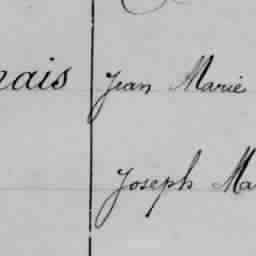 nais Jean Marie
Joseph Ma